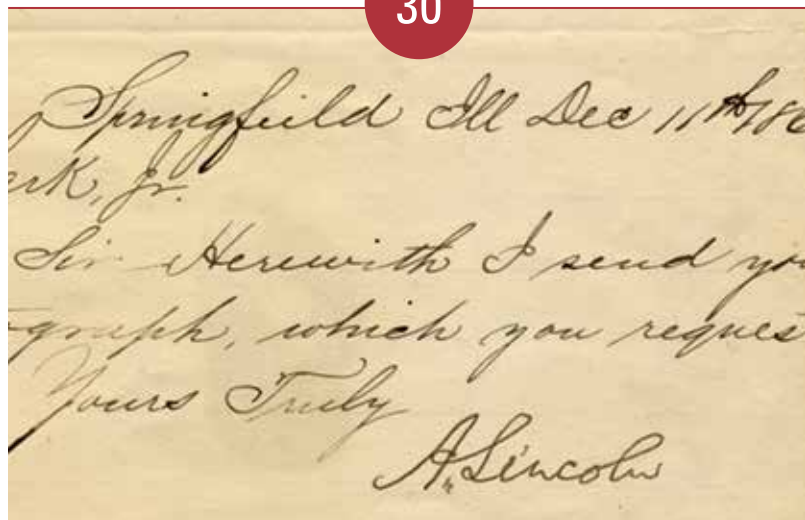 30
Springfield Ill Dec 11th 186
erk, Jr.
Sir Herewith I send you
graph, which you reques
Yours Truly
A. Lincoln